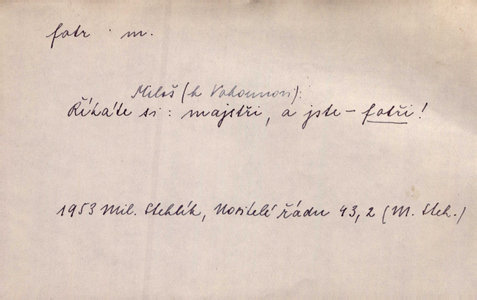 fotr m.
Miloš (k Vohounovi):
Říkáte si: majstři, a jste – fotři!
1953 Mil. Stehlík, Nositelé řádu 43, 2 (M. Steh.)